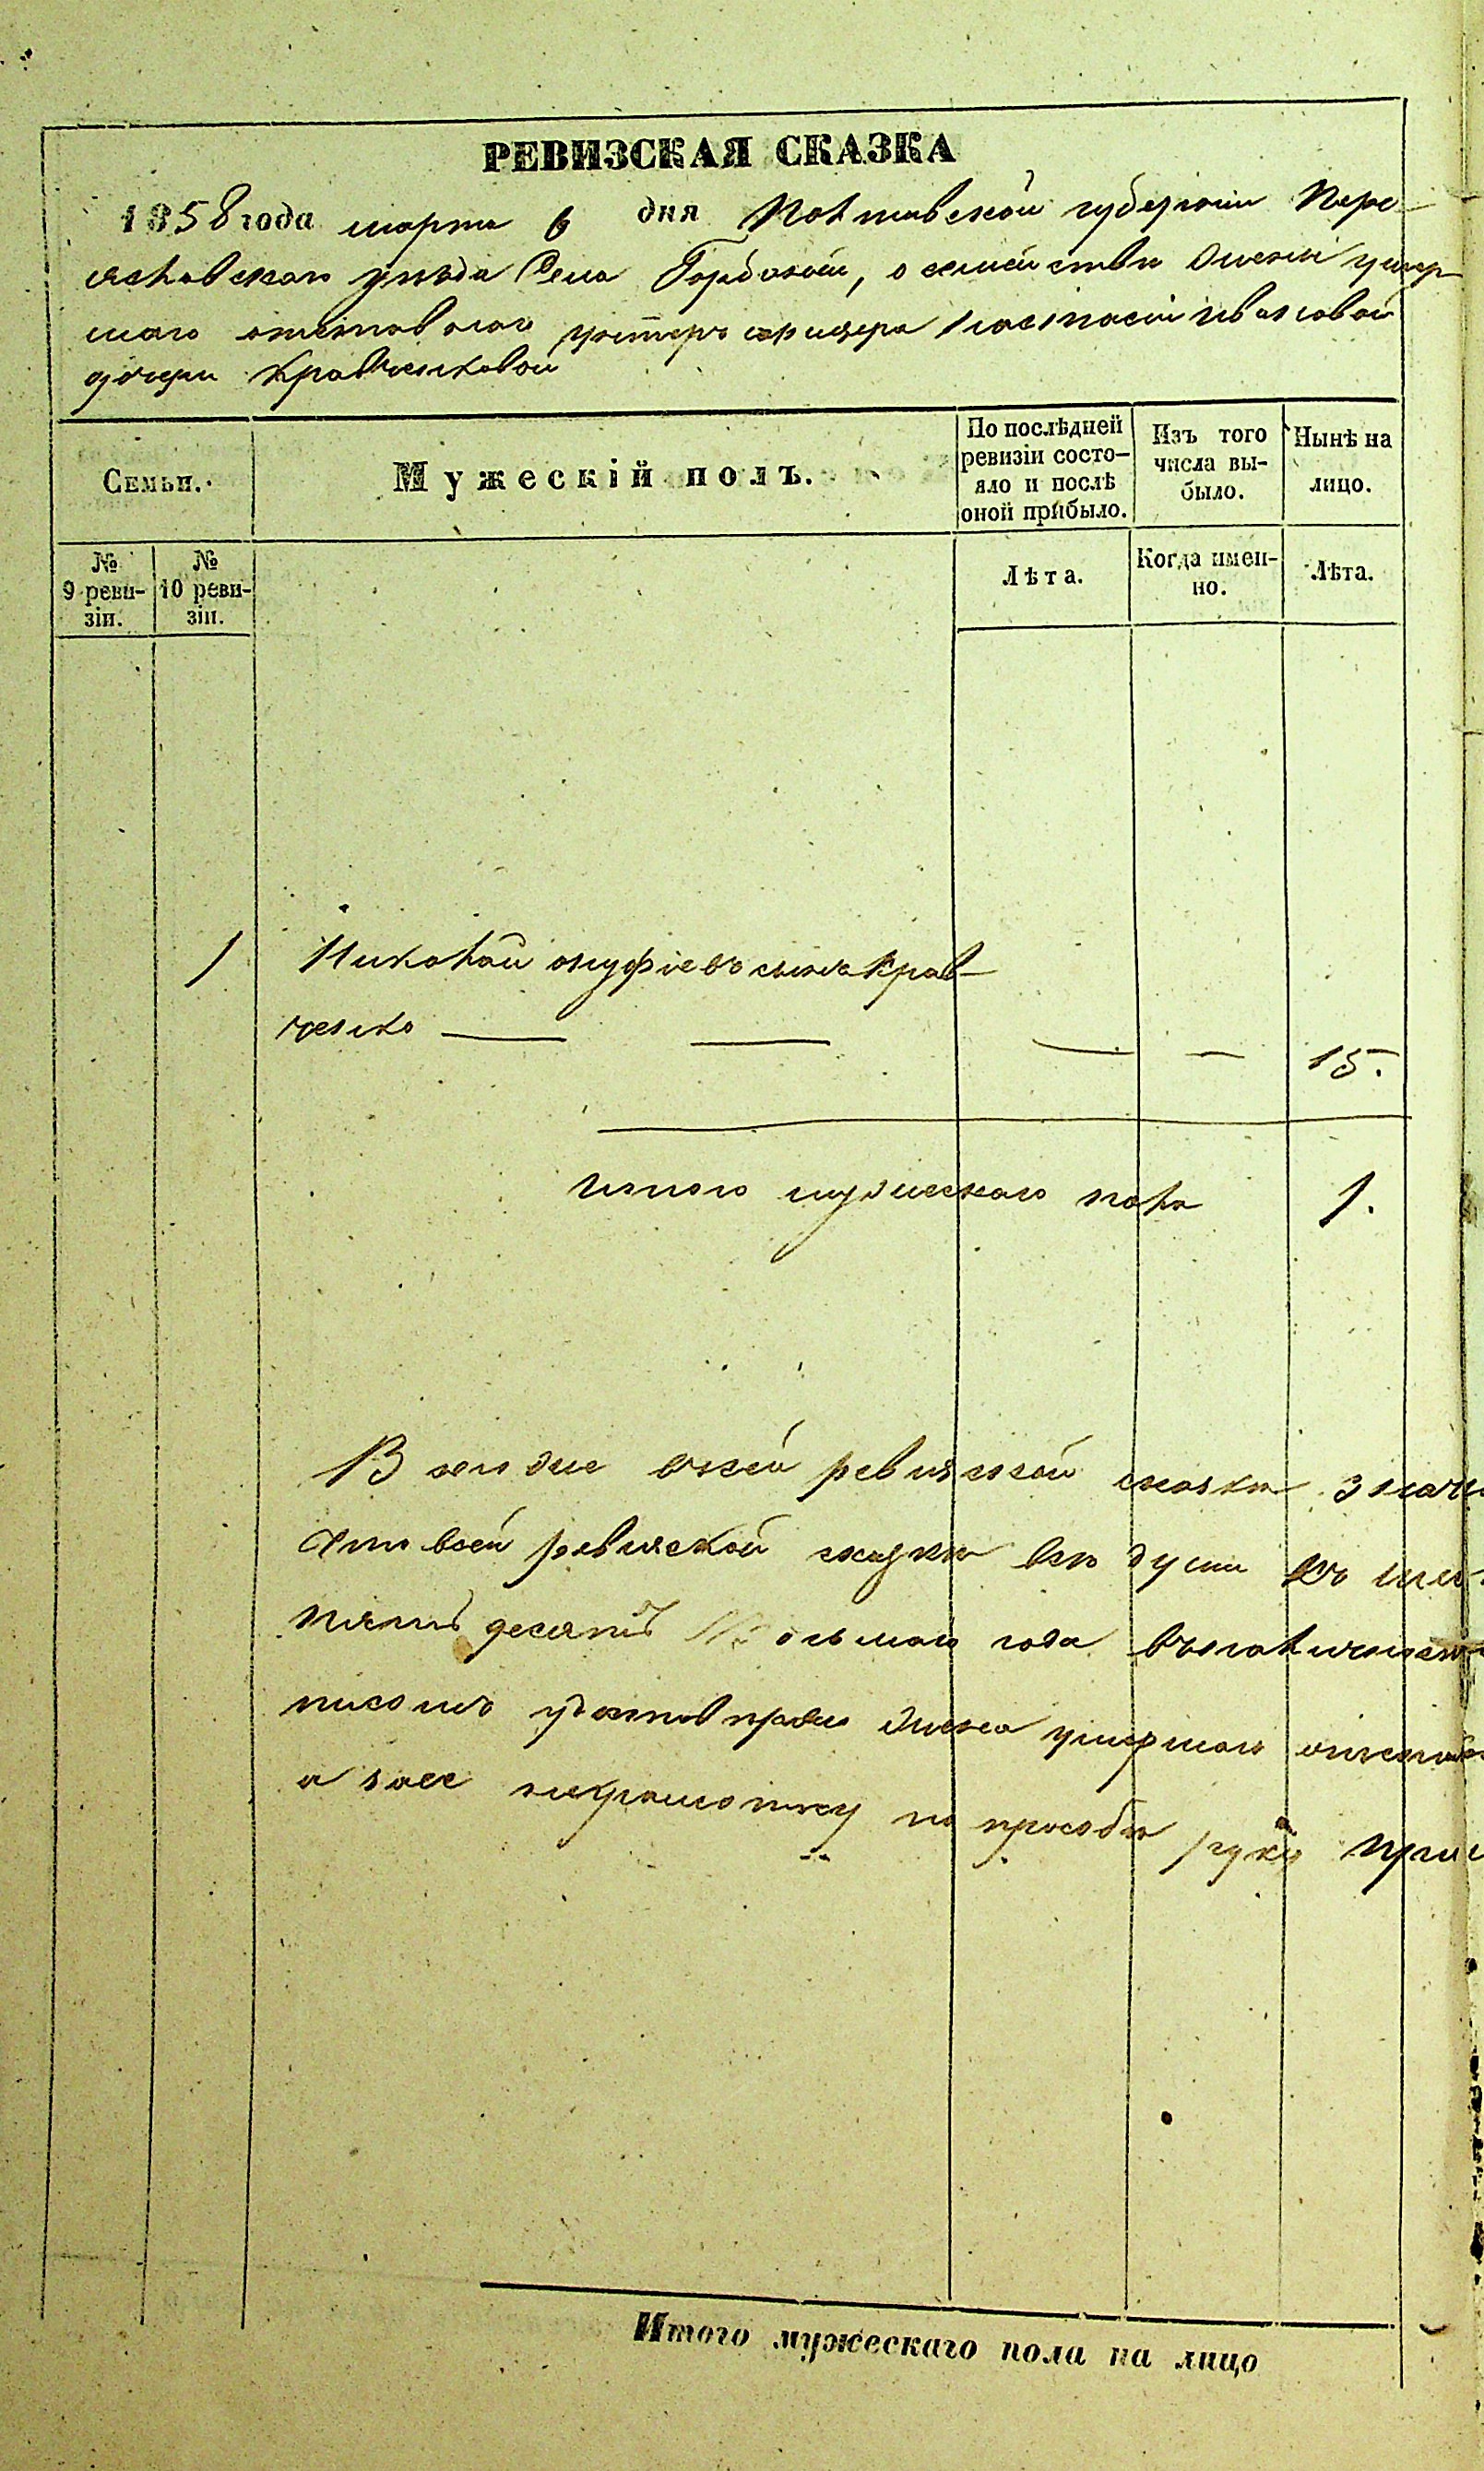 РЕВИЗСКАЯ СКАЗКА
1858 года марта 6 дня Полтавской губерніи Пере-
яславскаго уезда Села Горбаней, о семействе жены умер-
шаго отставнаго унтеръ офицера Настасіи Ивановой
дочери Кравченковой
Семьи.
Мужескій полъ.
По послѣдней ревизіи состо-
яло и послѣ
оной прибыло.
Изъ того
числа вы-
было.
Нынѣ на
лицо.
№
9 реви-
зіи.
№
10 реви-
зіи.
Лѣта.
Когда имен-
но.
Лѣта.
1 Николай онуфріевъ сынъ Крав-
ченко — — — — 15.
Итого мужескаго пола 1.
ревизской сказки
ревизской сказки все души
пять десятъ осьмаго года
жена умершаго
а за нее неграмотну по прозбе руку
Итого мужескаго пола на лицо